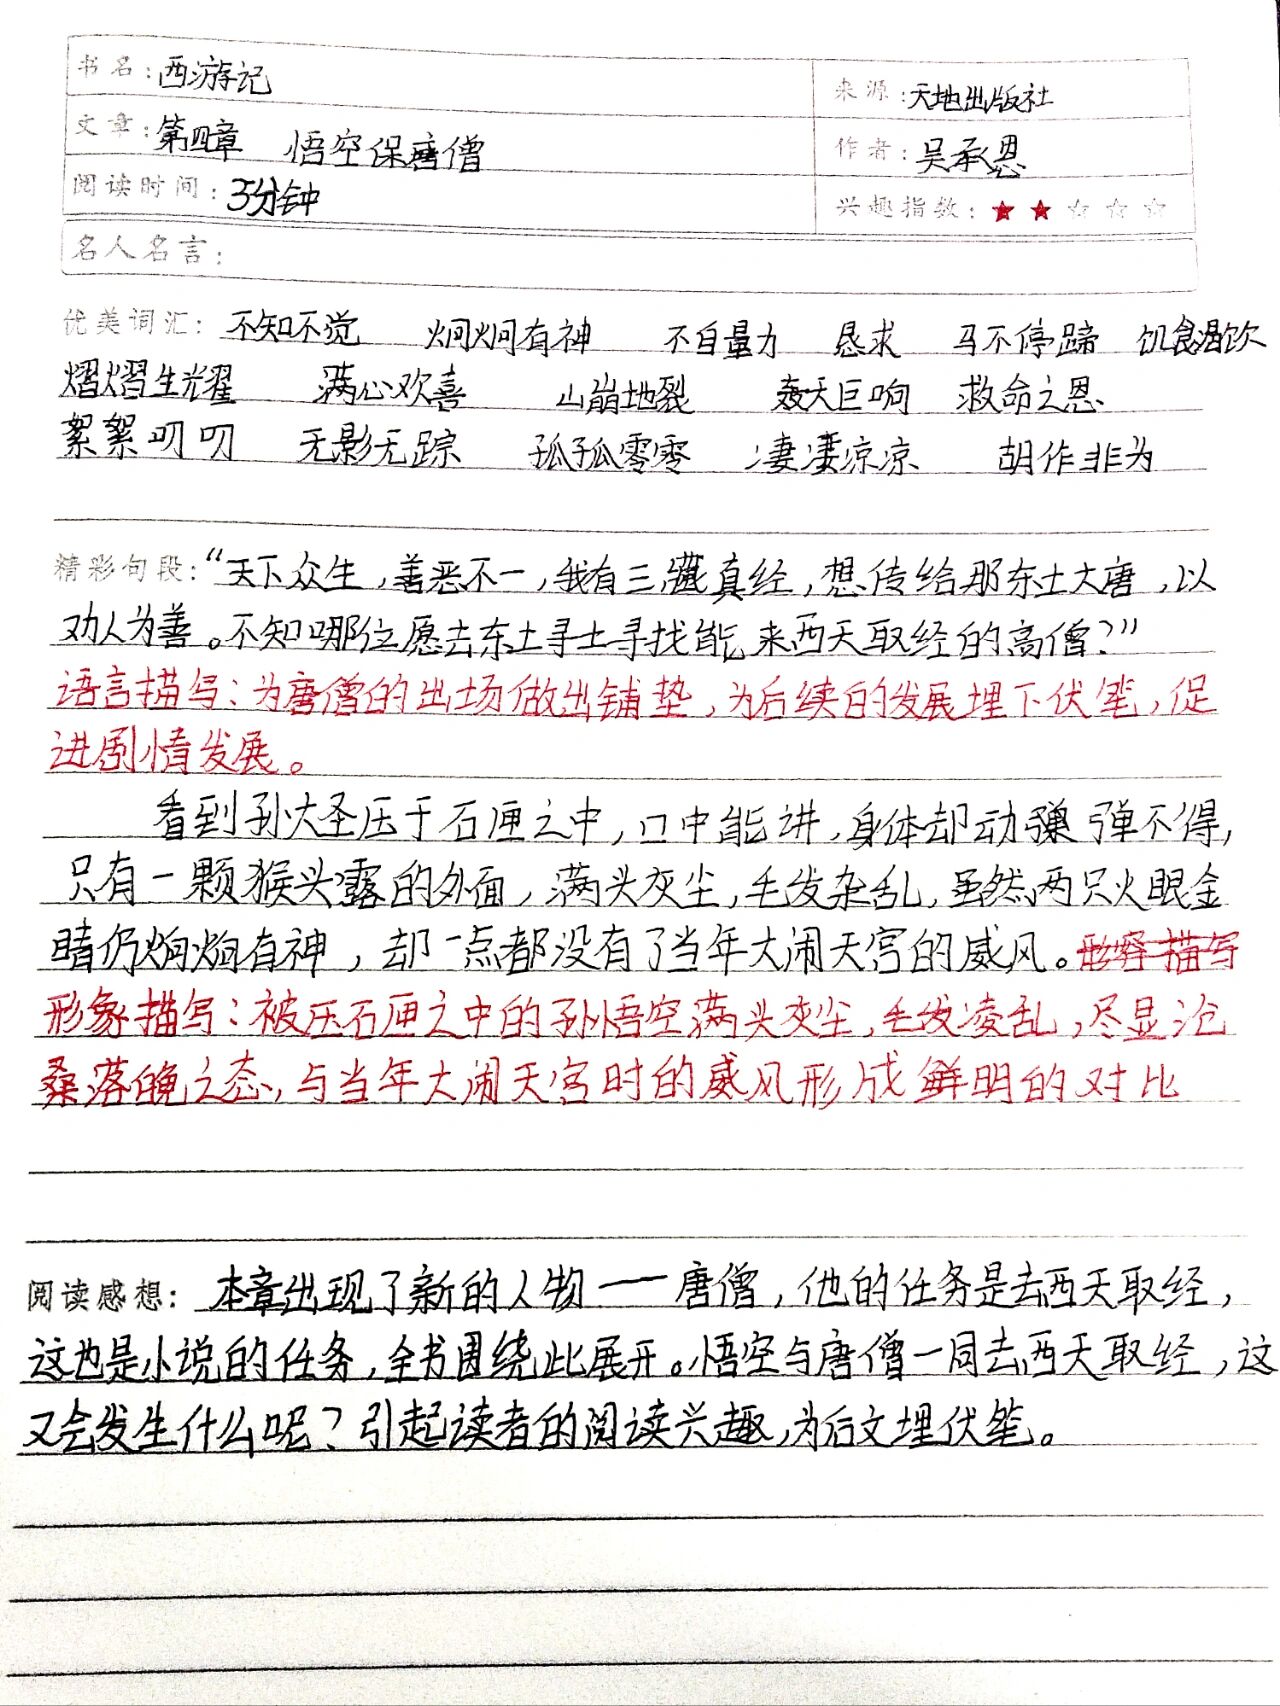 书名：西游记
来源：天地出版社
文章：第四章 悟空保唐僧
作者：吴承恩
阅读时间：35分钟
兴趣指数：★★☆☆☆
名人名言：
优美词汇：不知不觉 炯炯有神 不自量力 恳求 马不停蹄 饥食渴饮
熠熠生耀 满心欢喜 山崩地裂 轰天巨响 救命之恩
絮絮叨叨 无影无踪 孤孤零零 凄凄凉凉 胡作非为
精彩句段：“天下众生，善恶不一，我有三藏真经，想传给那东土大唐，以
劝人为善。不知哪位愿去东土寻土寻找能来西天取经的高僧？”
语言描写：为唐僧的出场做出铺垫，为后续的发展埋下伏笔，促
进剧情发展。
看到孙大圣压于石匣之中，口中能讲，身体却动弹弹不得，
只有一颗猴头露的外面，满头灰尘，毛发杂乱，虽然两只火眼金
睛仍炯炯有神，却一点都没有了当年大闹天宫的威风。形容描写
形象描写：被压石匣之中的孙悟空满头灰尘，毛发凌乱，尽显沧
桑落魄之态，与当年大闹天宫时的威风形成鲜明的对比
阅读感想：本章出现了新的人物——唐僧，他的任务是去西天取经，
这也是小说的任务，全书围绕此展开。悟空与唐僧一同去西天取经，这
又会发生什么呢？引起读者的阅读兴趣，为后文埋伏笔。